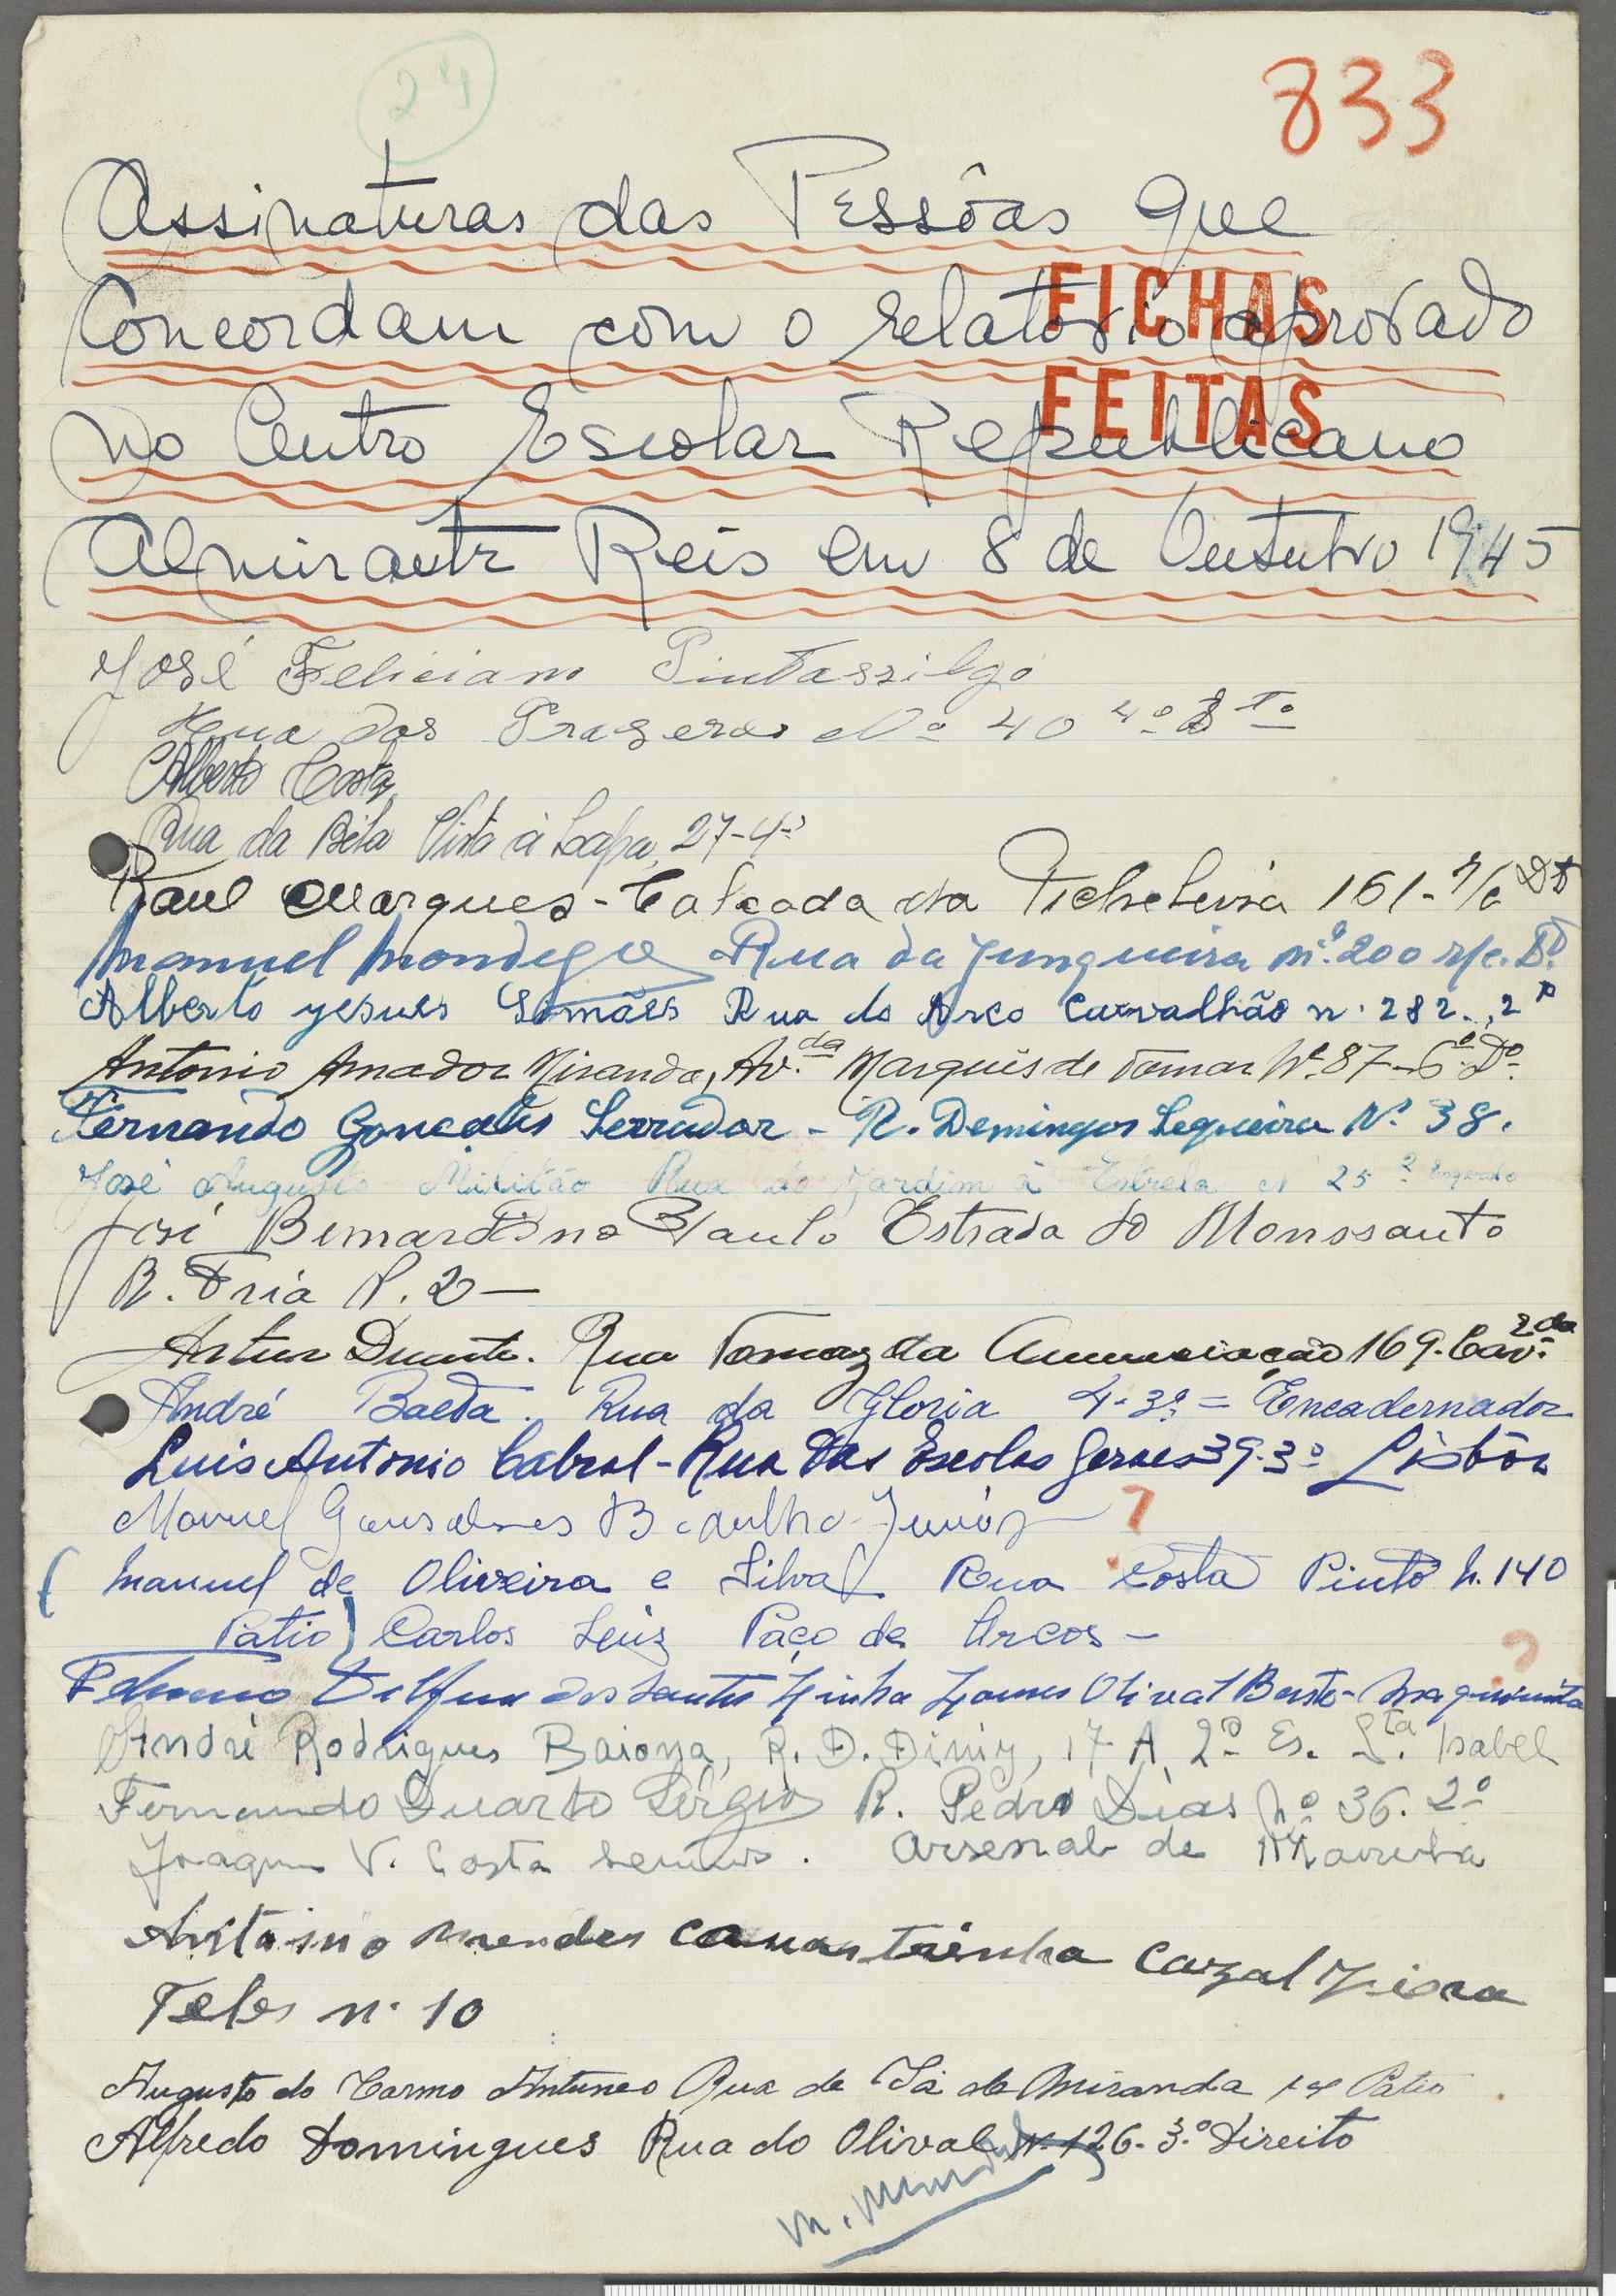 24
833
Assinaturas das Pessôas que
Concordam com o relatorio aprovado
FICHAS
FEITAS
no Centro Escolar Republicano
Almirante Reis em 8 de Outubro 1945
José Feliciano Pintassilgo
Rua dos Prazeres Nº 40 4º
Alberto Costa
Rua da Béla Vista à Lapa, 27-4º
Raul Marques - Calçada da Picheleira 161-r/c Dto
Manuel Mondego Rua da Junqueira nº 200 r/c. D.
Alberto Jesues Simões Rua do Arco Carvalhão n. 282., 2º
Antonio Amador Miranda, Av.da Marquês de Tomar Nº 87-6º Dº
Fernando Gonçalves Serrador - R. Domingos Sequeira Nº 38.
José Augusto Militão Rua do Jardim à Estrela Nº 25 2º Esquerdo
José Bernardino Paulo Estrada do Monssanto
R. Fria N. 20 -
Artur Duarte. Rua Tomaz da Anunciação 169. Cav. 2da
André Baeta. Rua da Gloria 4-3º = Encadernador
Luis Antonio Cabral - Rua das Escolas Geraes 39-3º Lisbôa
Manuel Gonsalves Júniór ?
Manuel de Oliveira e Silva Rua Costa Pinto N. 140
Patio Carlos Luiz Paço de Arcos -
dos Santos Gomes Olival Basto -
?
André Rodrigues Baiona, R. D. Diniz, 17 A 2º Es. Sta. Isabel
Fernando Duarte Sérgio R. Pedro Dias Nº 36. 2º
Joaquim V. Costa Arsenal de Marinha
António Mendes Canastreinha Cazal
Teles n. 10
Augusto do Carmo Antunes Rua de Sá de Miranda 14 Patio
Alfredo Domingues Rua do Olival N. 126-3.º Direito